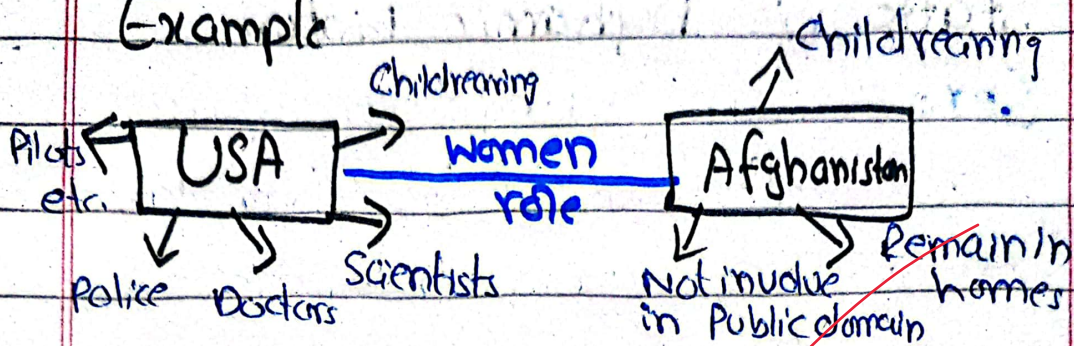 Example
Childrearing
Childrearing
Pilots
etc.
USA
women
role
Afghanistan
Police
Doctors
Scientists
Not invudve
in Public domain
Remain in
homes